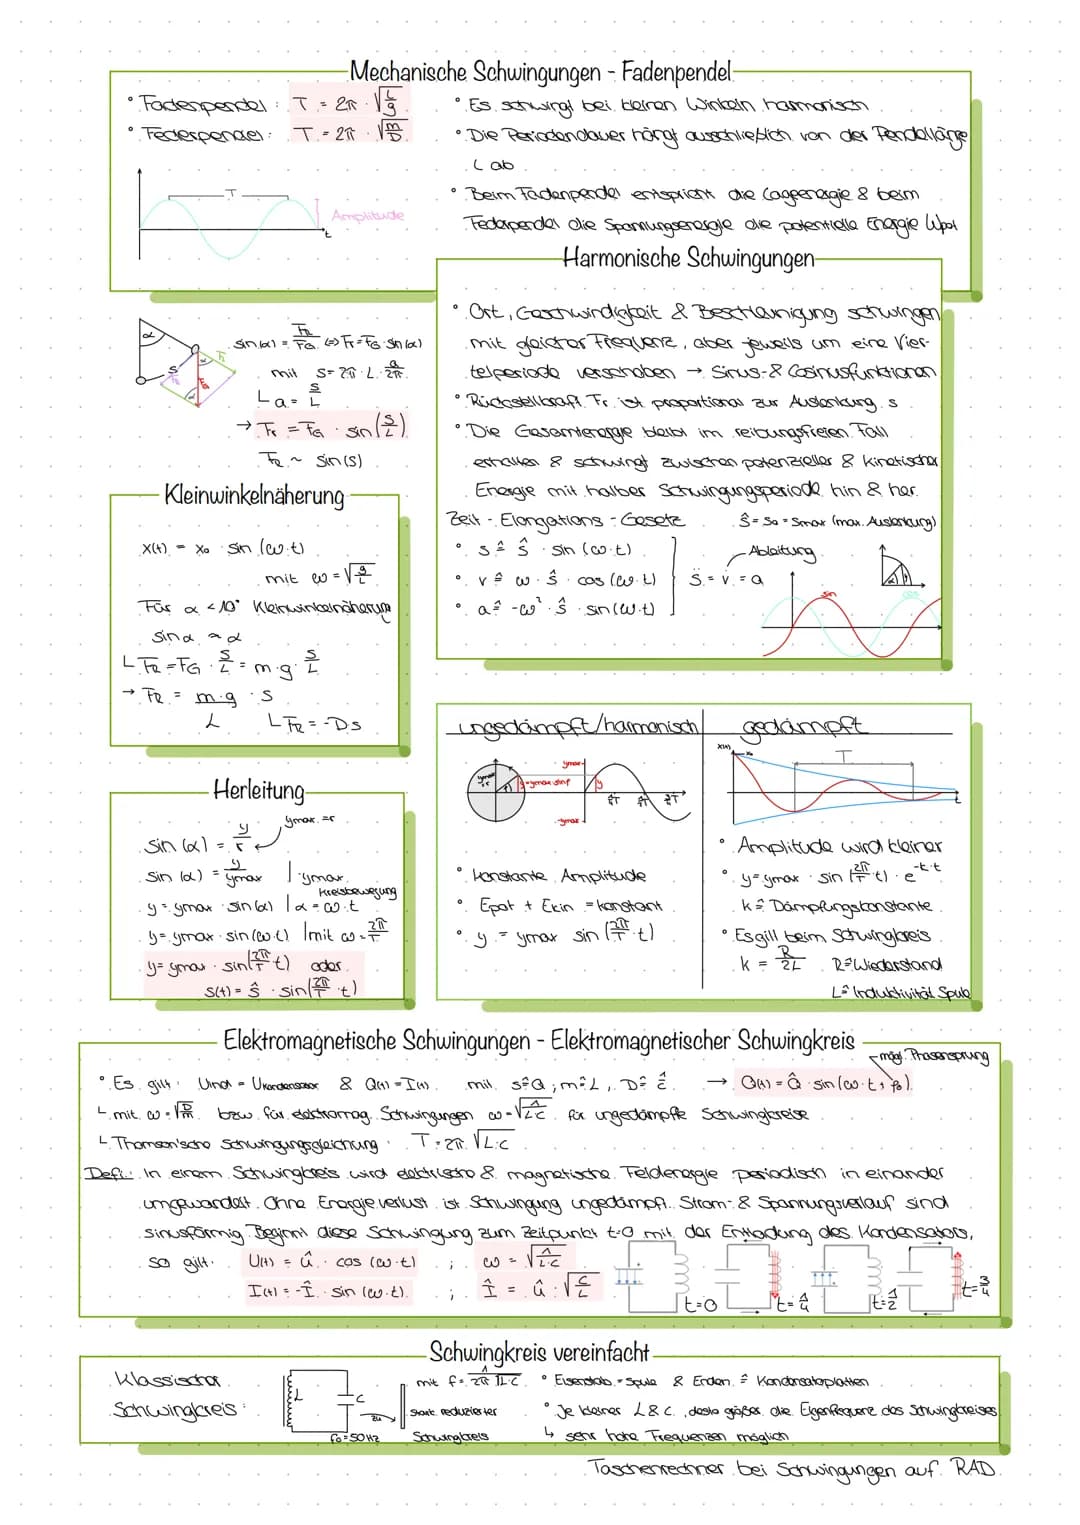 Mechanische Schwingungen - Fadenpendel
° Fadenpendel: T = 2π · √(L/g)
° Federpendel: T = 2π · √(m/D)
T
Amplitude
t
° Es schwingt bei kleinen Winkeln harmonisch
° Die Periodendauer hängt ausschließlich von der Pendellänge
L ab
° Beim Fadenpendel entspricht die Lageenergie & beim
Federpendel die Spannungsenergie die potentielle Energie Wpot
sin(α) = FR/FG ⇔ Fr = FG · sin(α)
mit s = 2π · L · α/2π
↳ α = s/L
→ Fr = FG · sin(s/L)
FR ~ sin(s)
Harmonische Schwingungen
° Ort, Geschwindigkeit & Beschleunigung schwingen
mit gleicher Frequenz, aber jeweils um eine Vier-
telperiode verschoben → Sinus- & Cosinusfunktionen
° Rückstellkraft Fr ist proportional zur Auslenkung s
° Die Gesamtenergie bleibt im reibungsfreien Fall
erhalten & schwingt zwischen potenzieller & kinetischer
Energie mit halber Schwingungsperiode hin & her
Zeit - Elongations - Gesetz ŝ = s₀ = smax (max. Auslenkung)
° s ≙ ŝ · sin(ω·t)
° v ≙ ω · ŝ · cos(ω·t)
° a ≙ -ω² · ŝ · sin(ω·t)
Ableitung
s̈ = v̇ = a
sin cos
Kleinwinkelnäherung
x(t) = x₀ · sin(ω·t)
mit ω = √(g/L)
Für α < 10° Kleinwinkelnäherung
sin α ≈ α
↳ FR = FG · s/L = m·g· s/L
→ FR = m·g/L · s
↳ FR = -Ds
Herleitung
sin(α) = y/r ymax = r
sin(α) = y/ymax | · ymax
Kreisbewegung
y = ymax · sin(α) | α = ω·t
y = ymax · sin(ω·t) | mit ω = 2π/T
y = ymax · sin(2π/T · t) oder
s(t) = ŝ · sin(2π/T · t)
ungedämpft/harmonisch
ymax
y = ymax sinφ
y
-ymax
° konstante Amplitude
° Epot + Ekin = konstant
° y = ymax sin(2π/T · t)
gedämpft
x(t) x₀
T
t
° Amplitude wird kleiner
° y = ymax · sin(2π/T · t) · e^(-k·t)
k ≙ Dämpfungskonstante
° Es gilt beim Schwingkreis
k = R/2L R ≙ Wiederstand
L ≙ Induktivität Spule
Elektromagnetische Schwingungen - Elektromagnetischer Schwingkreis
mögl. Phasensprung
° Es gilt: Uind = Ukondensator & Q̇(t) = I(t) mit s≙Q; m≙L, D≙ → Q(t) = Q̂ · sin(ω·t + φ₀)
↳ mit ω = √(D/m) bzw. für elektromag. Schwingungen ω = √(1/L·C) für ungedämpfte Schwingkreise
↳ Thomson'sche Schwingungsgleichung: T = 2π · √(L·C)
Defi.: In einem Schwingkreis wird elektrische & magnetische Feldenergie periodisch in einander
umgewandelt. Ohne Energieverlust ist Schwingung ungedämpft. Strom- & Spannungsverlauf sind
sinusförmig. Beginnt diese Schwingung zum Zeitpunkt t=0 mit der Entladung des Kondensators,
so gilt: U(t) = û · cos(ω·t) ; ω = √(1/L·C)
I(t) = -Î · sin(ω·t) ; Î = û · √(C/L)
t=0 t=1/4 t=1/2 t=3/4
Schwingkreis vereinfacht
Klassischer
Schwingkreis:
L C
f₀ = 50Hz
zu
mit f = 1/(2π √(L·C))
stark reduzierter
Schwingkreis
° Eisenstab = Spule & Enden ≙ Kondensatorplatten
° Je kleiner L & C, desto größer die Eigenfrequenz des Schwingkreises
↳ sehr hohe Frequenzen möglich
Taschenrechner bei Schwingungen auf RAD